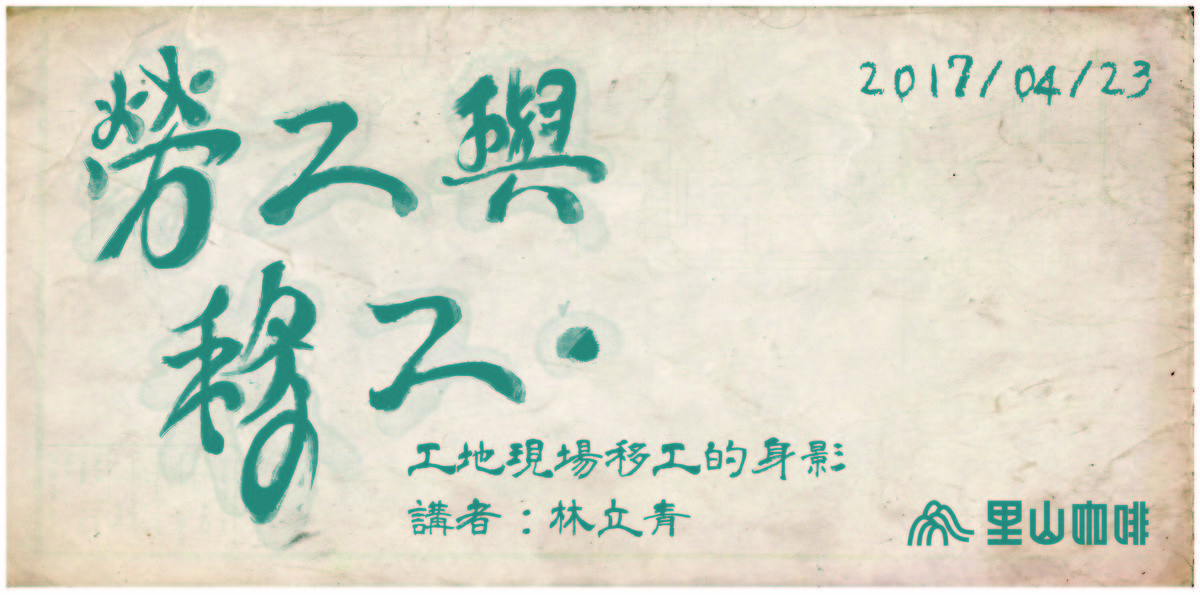 2017/04/23
勞工與
移工·
工地現場移工的身影
講者：林立青
里山咖啡